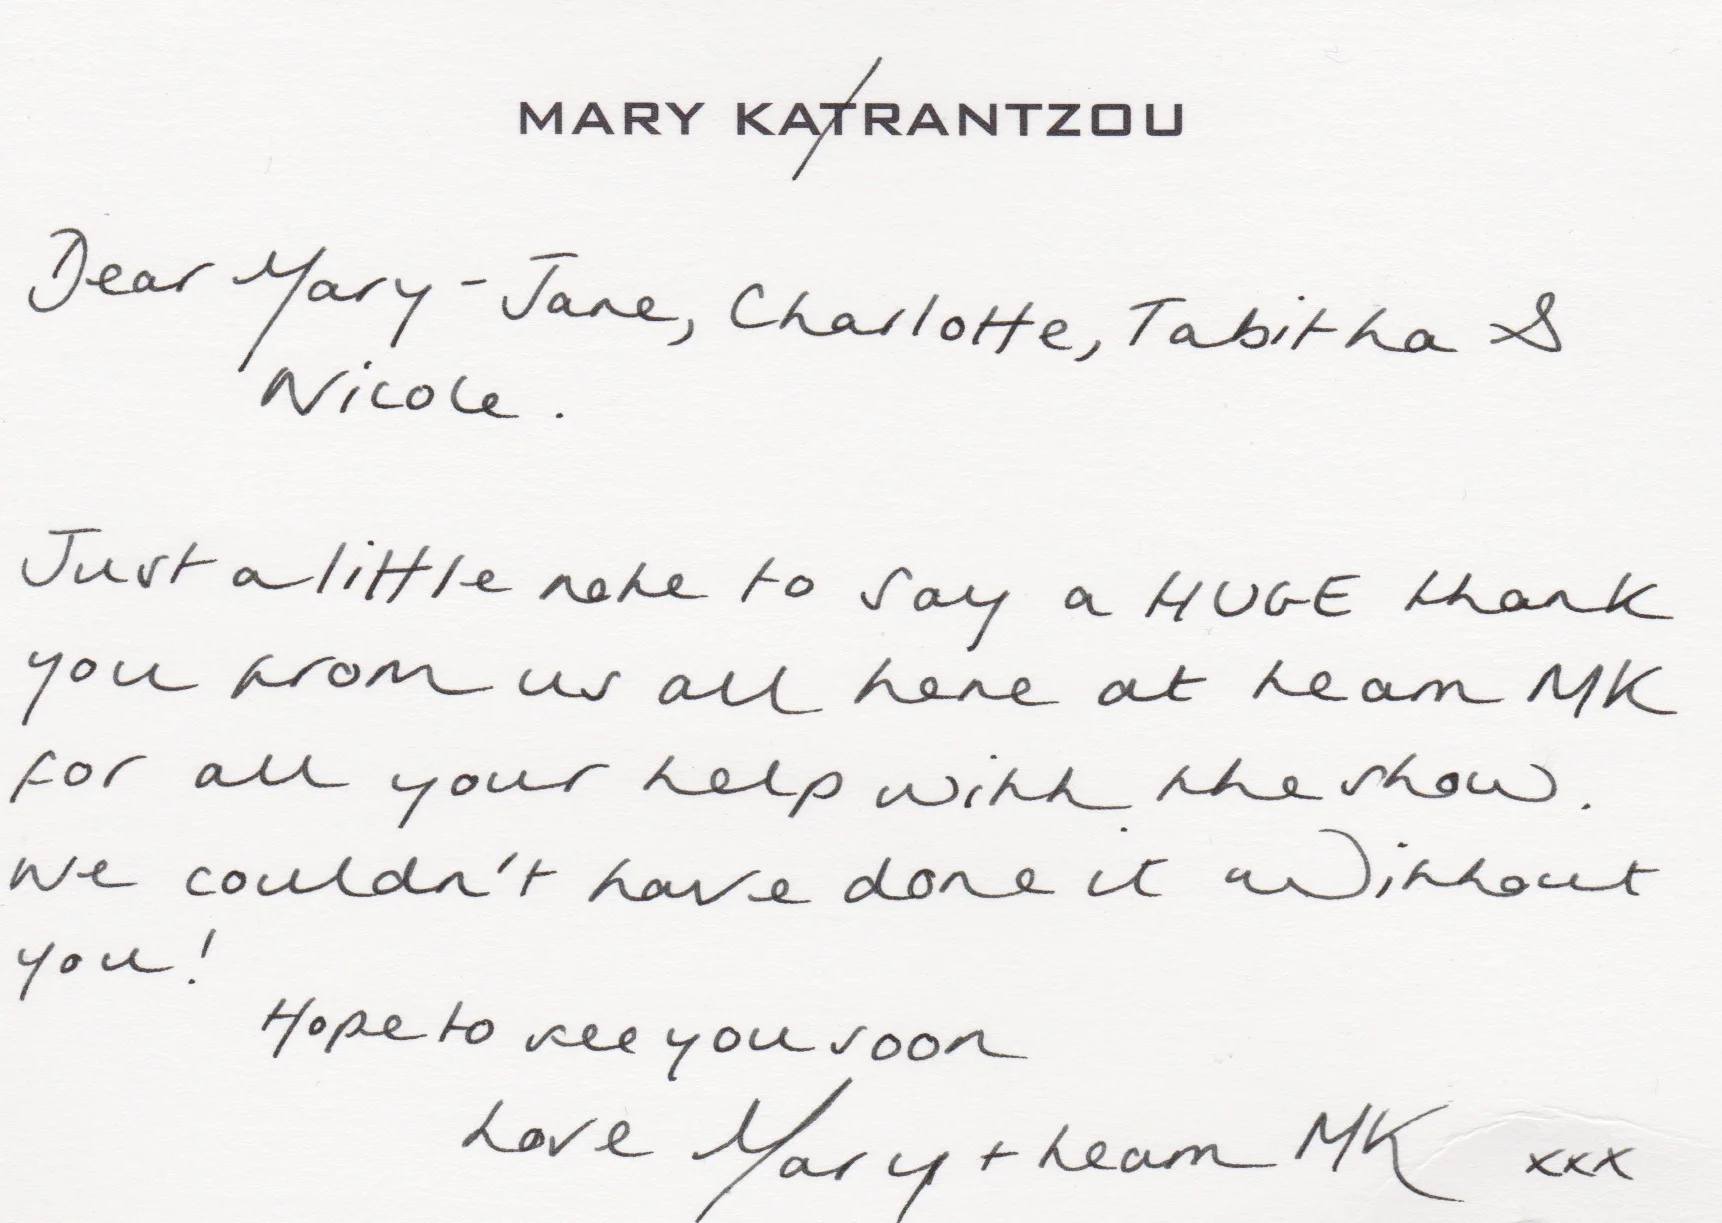 MARY KATRANTZOU
Dear Mary-Jane, Charlotte, Tabitha &
Nicole.
Just a little note to say a HUGE thank
you from us all here at team MK
for all your help with the show.
We couldn't have done it without
you!
Hope to see you soon
Love Mary + team MK xxx